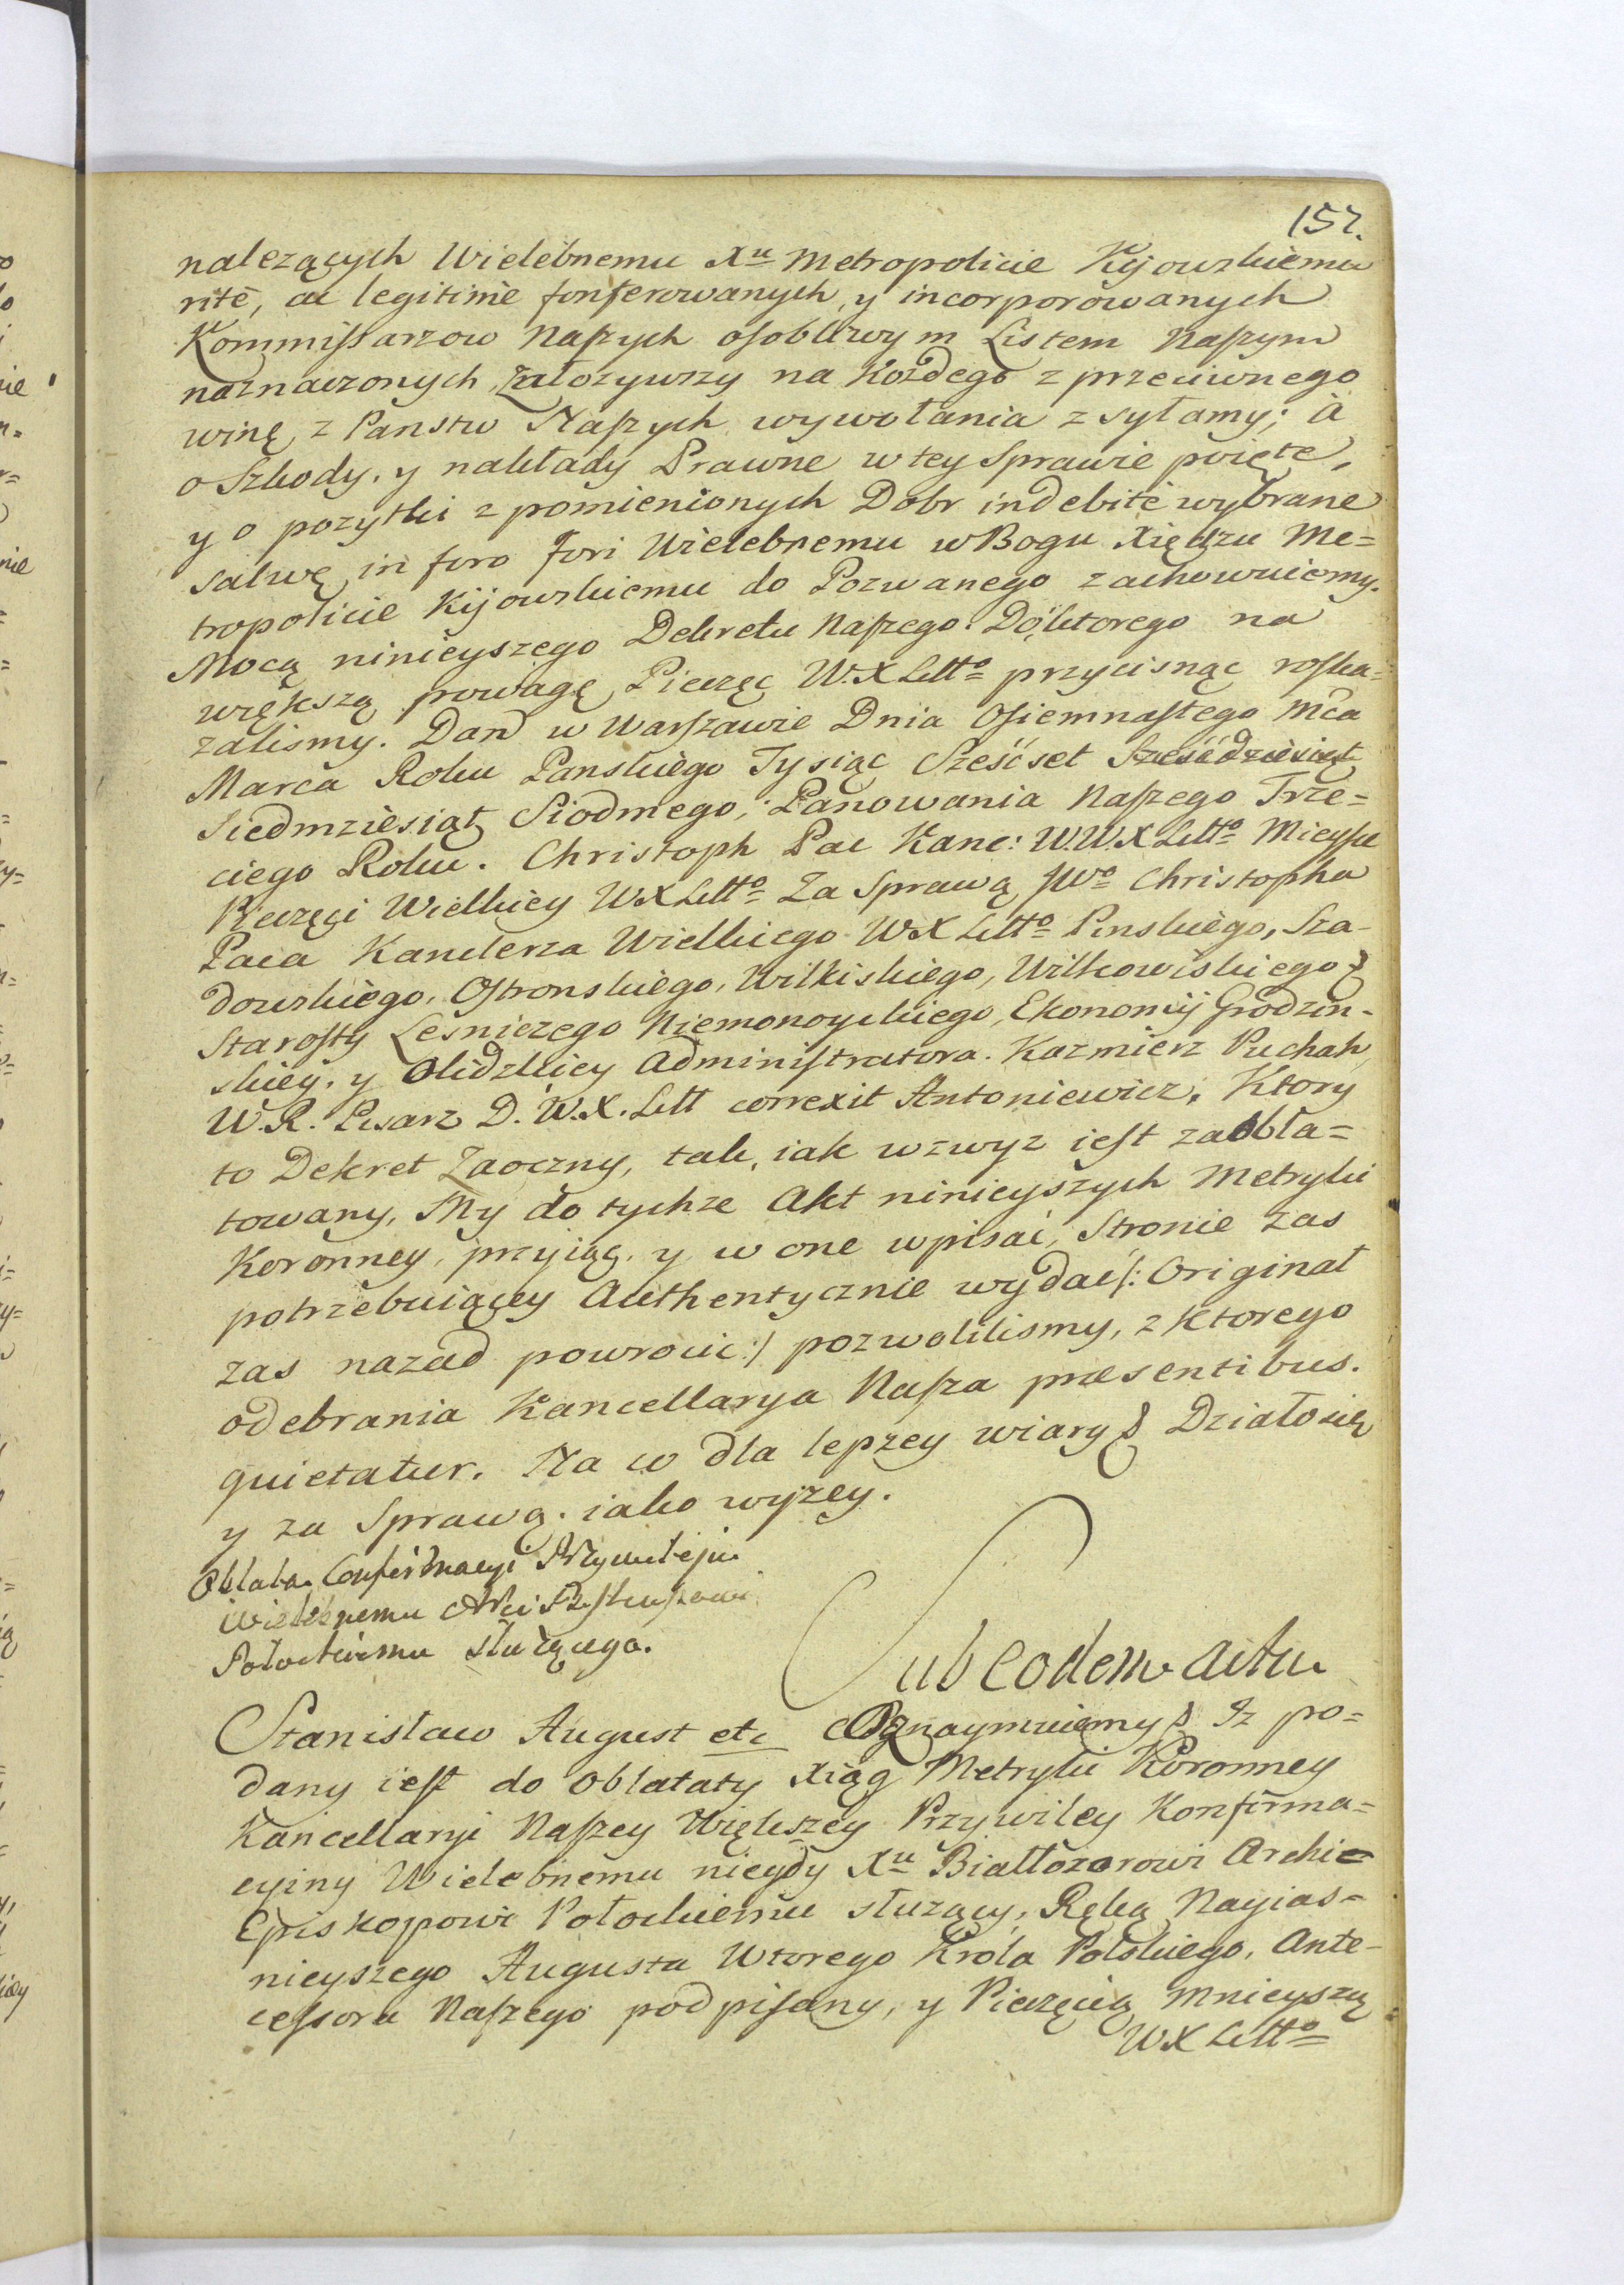 157.
należących Wielebnemu Xu Metropolicie Kijowskiemu
ritè, ac legitimè konferowanych, y incorporowanych
Kommissarzow Naszych osobliwym Listem Naszym
naznaczonych, założywszy na Kożdego z przeciwnego
winę z Panstw Naszych wywołania zsyłamy; à
o Szkody, y nakłady Prawne w tey Sprawie poięte,
y o pozytki z pomienionych Dobr indebitè wybrane
salwę in foro fori Wielebnemu w Bogu Xiędzu Me=
tropolicie Kijowskiemu do Pozwanego zachowuiemy.
Mocą ninieyszego Dekretu Naszego. Do ktorego na
większą powagę Pieczęc W.X Litto przycisnąc roska=
zalismy. Dan w Warszawie Dnia Osiemnastego Mca
Marca Roku Panskiego Tysiąc Sześćset Sześćdziesiąt
Siedmziesiąt Siodmego, Panowania Naszego Trze=
ciego Roku. Christoph Pac Kanc: W.W.X Litto Mieysce
Pieczęci Wielkiey WX Litto Za Sprawą JWo Christopha
Paca Kanclerza Wielkiego WX Litto Pinskiego, Sza-
dowskiego, Ostronskiego, Wilkiskiego, Wilkowiskiego
Starosty Lesniczego Niemonoyckiego, Ekonomij Grodzin-
skiey, y Olidzkiey Administratora. Kazmierz Puchah
W.R. Pisarz D. W.X. Litt correxit Antoniewicz. Ktory
to Dekret Zaoczny, tak, iak wzwyz iest zaobla=
towany, My do tychze Akt ninieyszych Metryki
Koronney, przyiąc, y w one wpisać, Stronie zas
potrzebuiącey Authentycznie wydać /: Original
zas nazad powrocic :/ pozwolilismy, z Ktorego
odebrania Kancellarya Nasza præsentibus.
quietatur. Na co dla lepszey wiary Działo się
y za Sprawą. iako wyżey.
Oblata Confirmacyi Przywileju
Wielebnemu
Połockiemu służącego.
Sub eodem actu
Stanisław August etc Oznaymuiemy Iz po=
dany iest do Oblataty Xiąg Metryki Koronney
Kancellaryi Naszey Większey Przywiley Konfirma=
cyiny Wielebnemu niegdy Xu Białłozorowi Archi=
Episkopowi Połockiemu służący, Ręką Nayias=
nieyszego Augusta Wtorego Króla Polskiego, Ante-
cessora Naszego podpisany, y Pieczęcią Mnieyszą
WX Litto